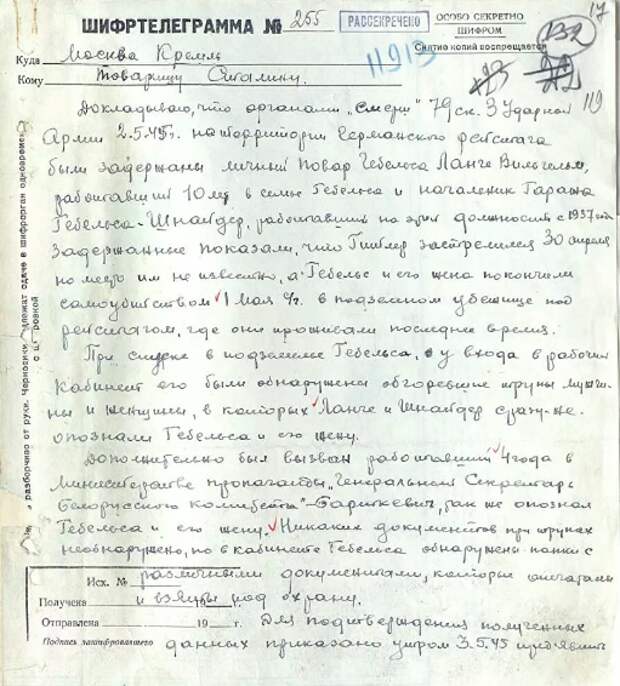 17
ШИФРТЕЛЕГРАММА № 255
РАССЕКРЕЧЕНО
ОСОБО СЕКРЕТНО
ШИФРОМ
Снятие копий воспрещается
132
11913
119
Куда Москва Кремль
Кому Товарищу Сталину.
Докладываю, что органами „Смерш" 79 ск. 3 Ударной
Армии 2.5.45г. на территории Германского рейстага
были задержаны личный повар Гебельса Ланге Вильгельм,
работавший 10 лет в семье Гебельса и начальник гаража
Гебельса - Шнайдер, работавший на этой должности с 1937 года
Задержанные показали, что Гитлер застрелился 30 апреля
но место им не известно, а Гебельс и его жена покончили
самоубийством 1 мая с/г. в подземном убежище под
рейстагом, где они проживали последнее время.
При спуске в подземелье Гебельса, у входа в рабочий
кабинет его были обнаружены обгоревшие трупы мужчи-
ны и женщины, в которых Ланге и Шнайдер сразу-же
опознали Гебельса и его жену.
Дополнительно был вызван работавший 4 года в
Министерстве пропаганды „Генеральный Секретарь
Белорусского комитета"- так же опознал
Гебельса и его жену. Никаких документов при трупах
необнаружено, но в кабинете Гебельса обнаружены папки с
различными документами, которые опечатаны
и взяты под охрану.
Для подтверждения полученных
данных приказано утром 3.5.45 предъявить
Исх. №
Получена
Отправлена 19 г.
Подпись зашифровавшего
разборчиво от руки. Черновики подлежат сдаче в шифрорган одновремен